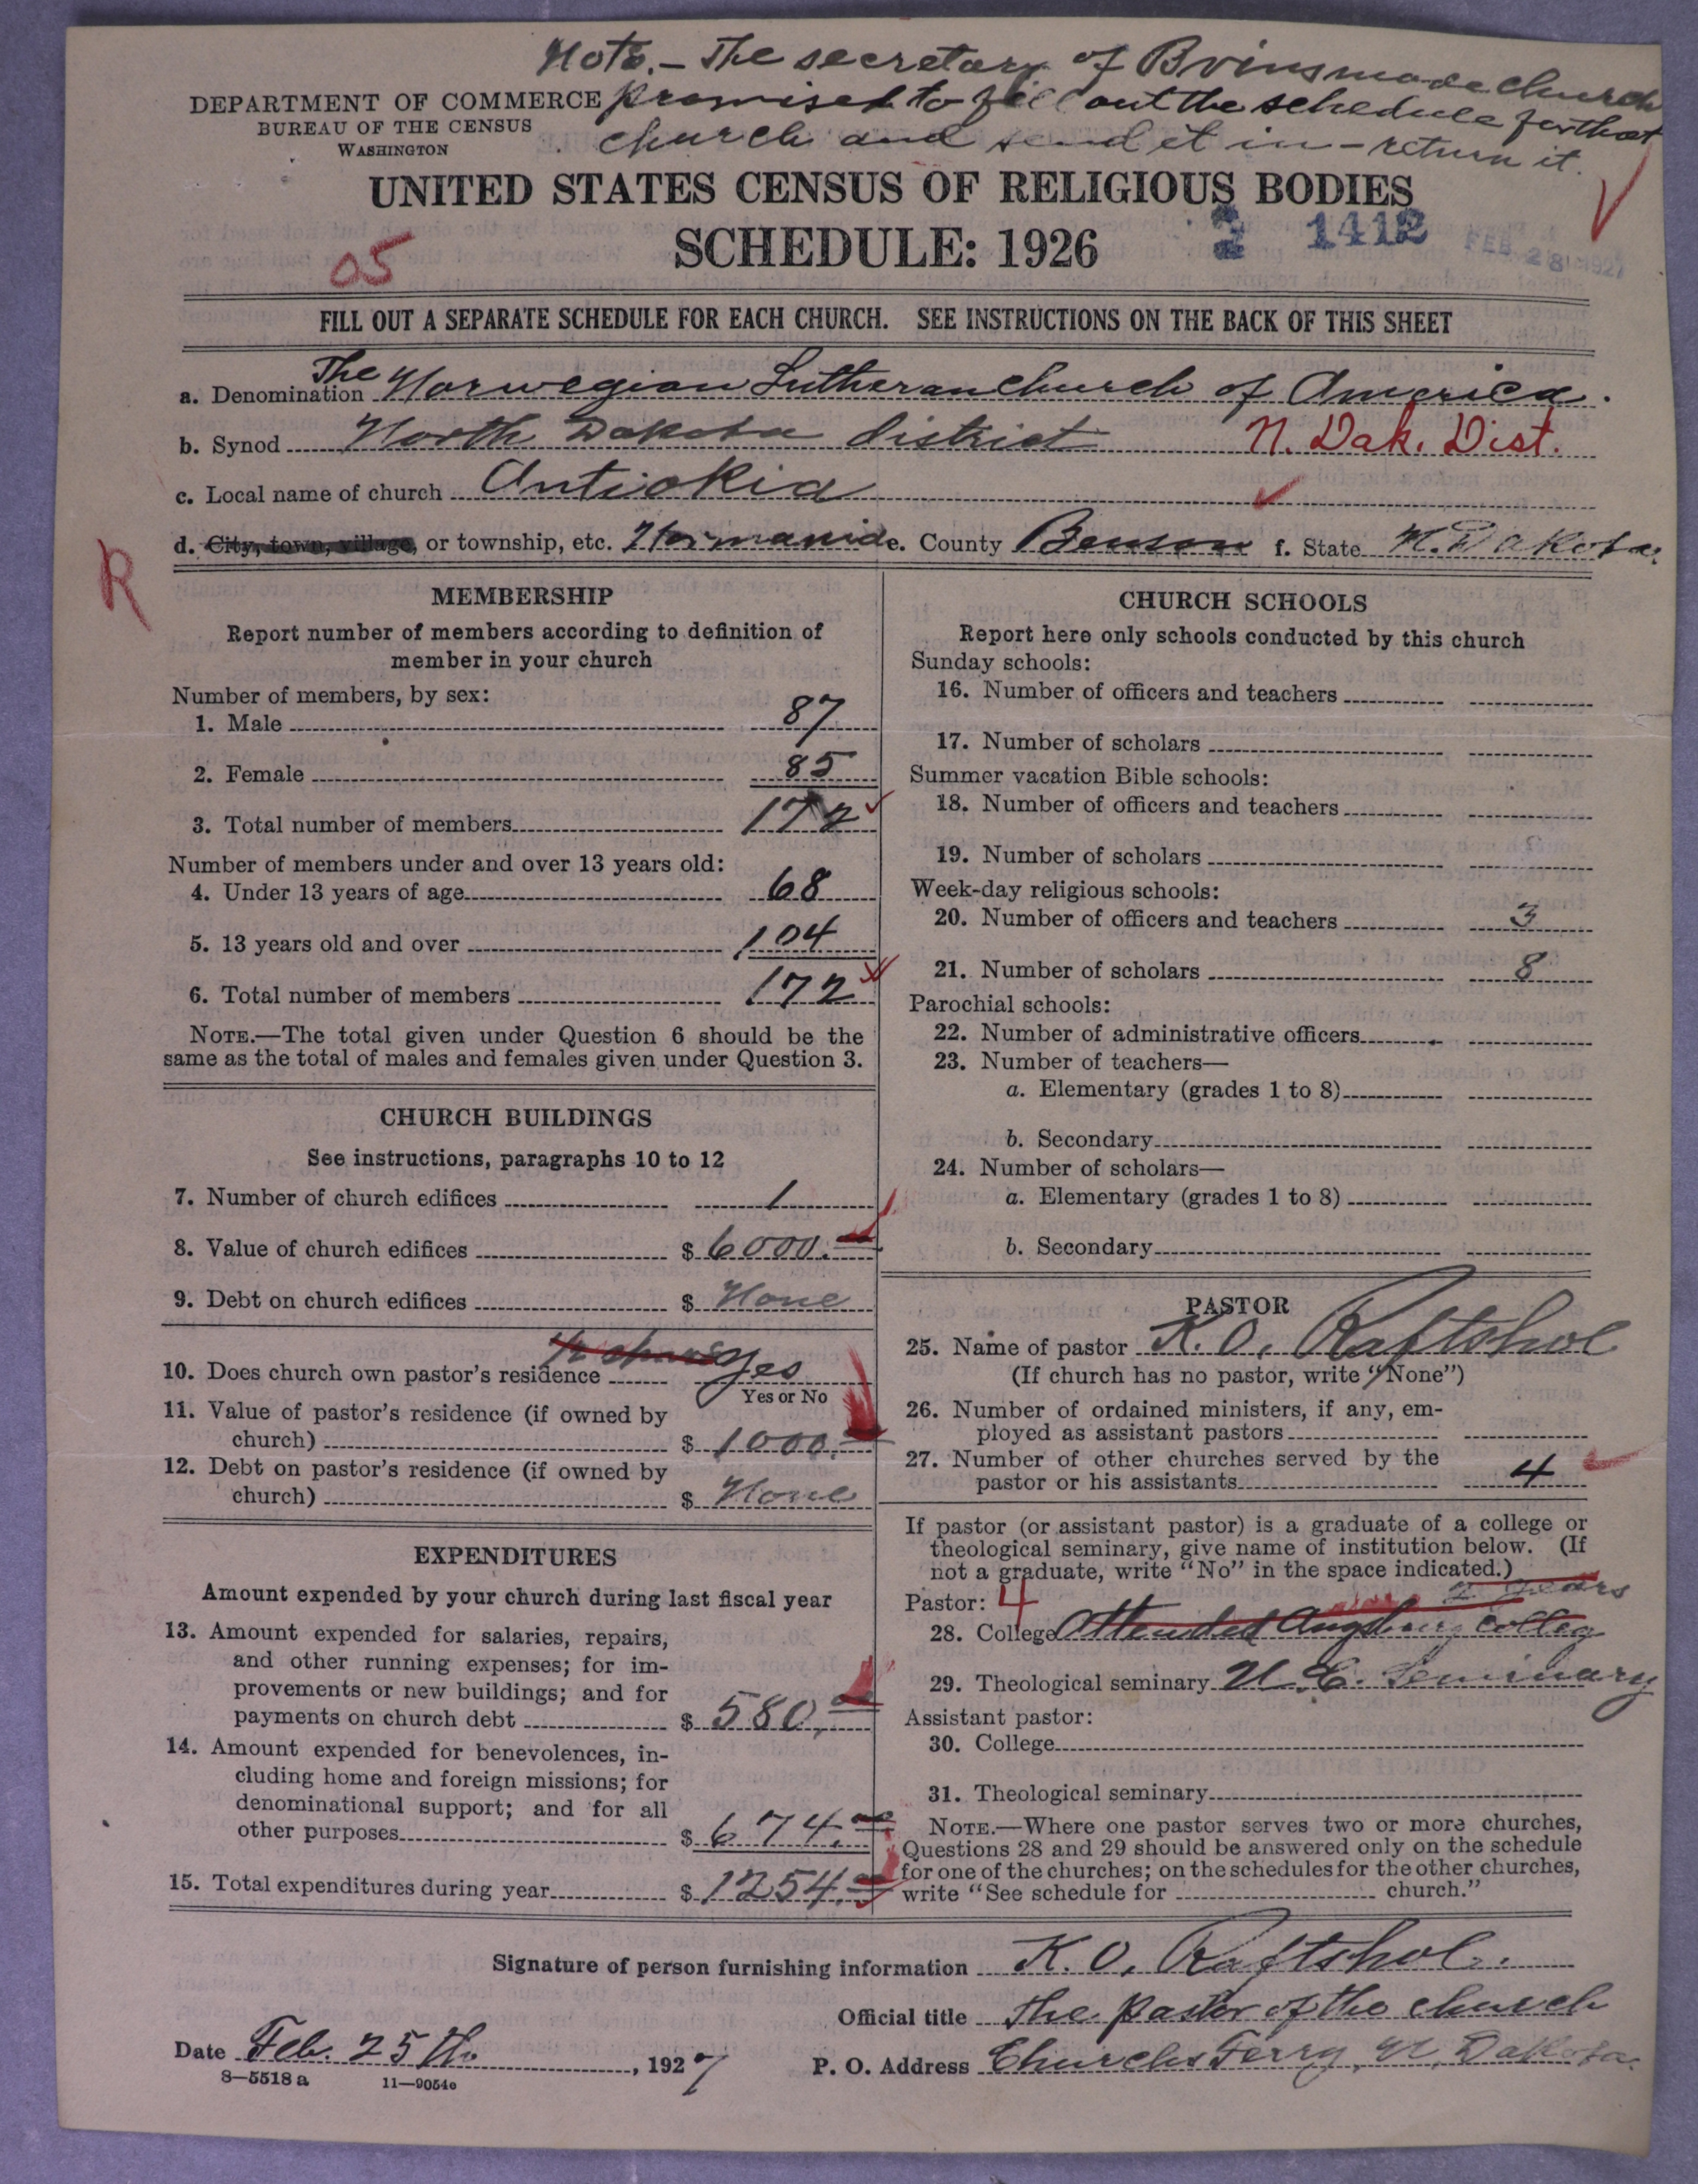 Note. - The secretary of Brinsmade church
DEPARTMENT OF COMMERCE promised to fill out the schedule for that
BUREAU OF THE CENSUS
WASHINGTON church and send it in - return it.
UNITED STATES CENSUS OF RELIGIOUS BODIES
SCHEDULE: 1926
2 1412 FEB 28 1927
05
FILL OUT A SEPARATE SCHEDULE FOR EACH CHURCH. SEE INSTRUCTIONS ON THE BACK OF THIS SHEET
a. Denomination The Norwegian Lutheran Church of America.
b. Synod North Dakota district N. Dak. Dist.
c. Local name of church Antiokia
d. City, town, village, or township, etc. Normania e. County Benson f. State N. Dakota.
R
MEMBERSHIP
Report number of members according to definition of
member in your church
Number of members, by sex:
1. Male 87
2. Female 85
3. Total number of members 172
Number of members under and over 13 years old:
4. Under 13 years of age 68
5. 13 years old and over 104
6. Total number of members 172
NOTE.—The total given under Question 6 should be the
same as the total of males and females given under Question 3.
CHURCH BUILDINGS
See instructions, paragraphs 10 to 12
7. Number of church edifices 1
8. Value of church edifices $ 6000.
9. Debt on church edifices $ None
10. Does church own pastor's residence yes
Yes or No
11. Value of pastor's residence (if owned by
church) $ 1000.
12. Debt on pastor's residence (if owned by
church) $ None
EXPENDITURES
Amount expended by your church during last fiscal year
13. Amount expended for salaries, repairs,
and other running expenses; for im-
provements or new buildings; and for
payments on church debt $ 580.
14. Amount expended for benevolences, in-
cluding home and foreign missions; for
denominational support; and for all
other purposes $ 674.
15. Total expenditures during year $ 1254.
CHURCH SCHOOLS
Report here only schools conducted by this church
Sunday schools:
16. Number of officers and teachers
17. Number of scholars
Summer vacation Bible schools:
18. Number of officers and teachers
19. Number of scholars
Week-day religious schools:
20. Number of officers and teachers 3
21. Number of scholars 8
Parochial schools:
22. Number of administrative officers
23. Number of teachers—
a. Elementary (grades 1 to 8)
b. Secondary
24. Number of scholars—
a. Elementary (grades 1 to 8)
b. Secondary
PASTOR
25. Name of pastor K. O. Raftshol
(If church has no pastor, write "None")
26. Number of ordained ministers, if any, em-
ployed as assistant pastors
27. Number of other churches served by the
pastor or his assistants 4
If pastor (or assistant pastor) is a graduate of a college or
theological seminary, give name of institution below. (If
not a graduate, write "No" in the space indicated.)
Pastor: 4 2 years
28. College Attended Augsburg Colleg
29. Theological seminary U. C. Seminary
Assistant pastor:
30. College
31. Theological seminary
NOTE.—Where one pastor serves two or more churches,
Questions 28 and 29 should be answered only on the schedule
for one of the churches; on the schedules for the other churches,
write "See schedule for church."
Signature of person furnishing information K. O. Raftshol.
Official title The pastor of the church
Date Feb. 25th, 1927 P. O. Address Churchs Ferry, N. Dakota.
8—5518 a 11—9054c